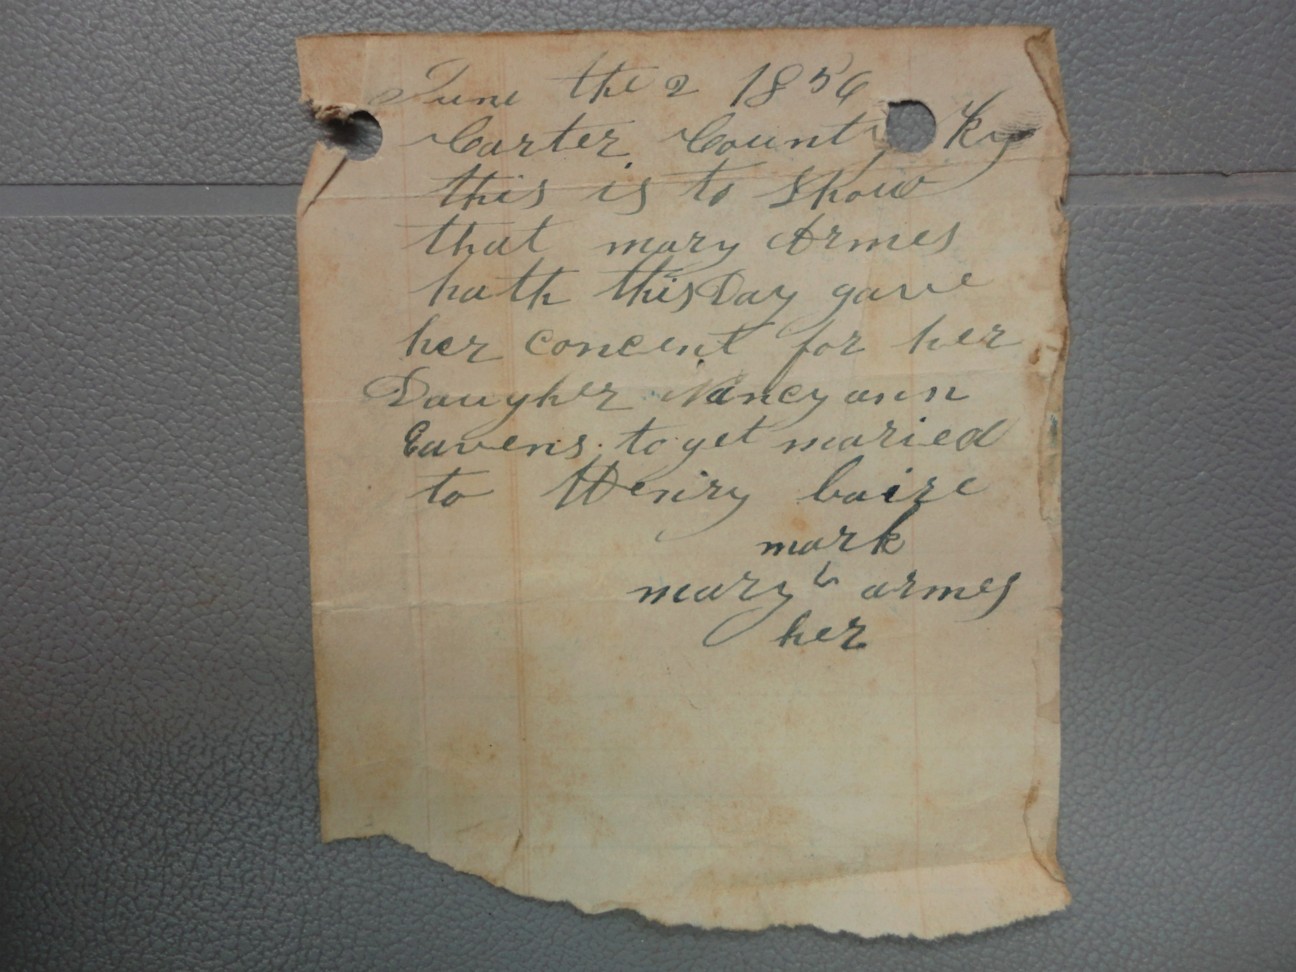 June the 2 1856
Carter County Ky
this is to Show
that mary Armes
hath this Day gave
her concent for her
Daugher Nancy ann
Eavens to get maried
to Henry baize
mark
mary armes
her